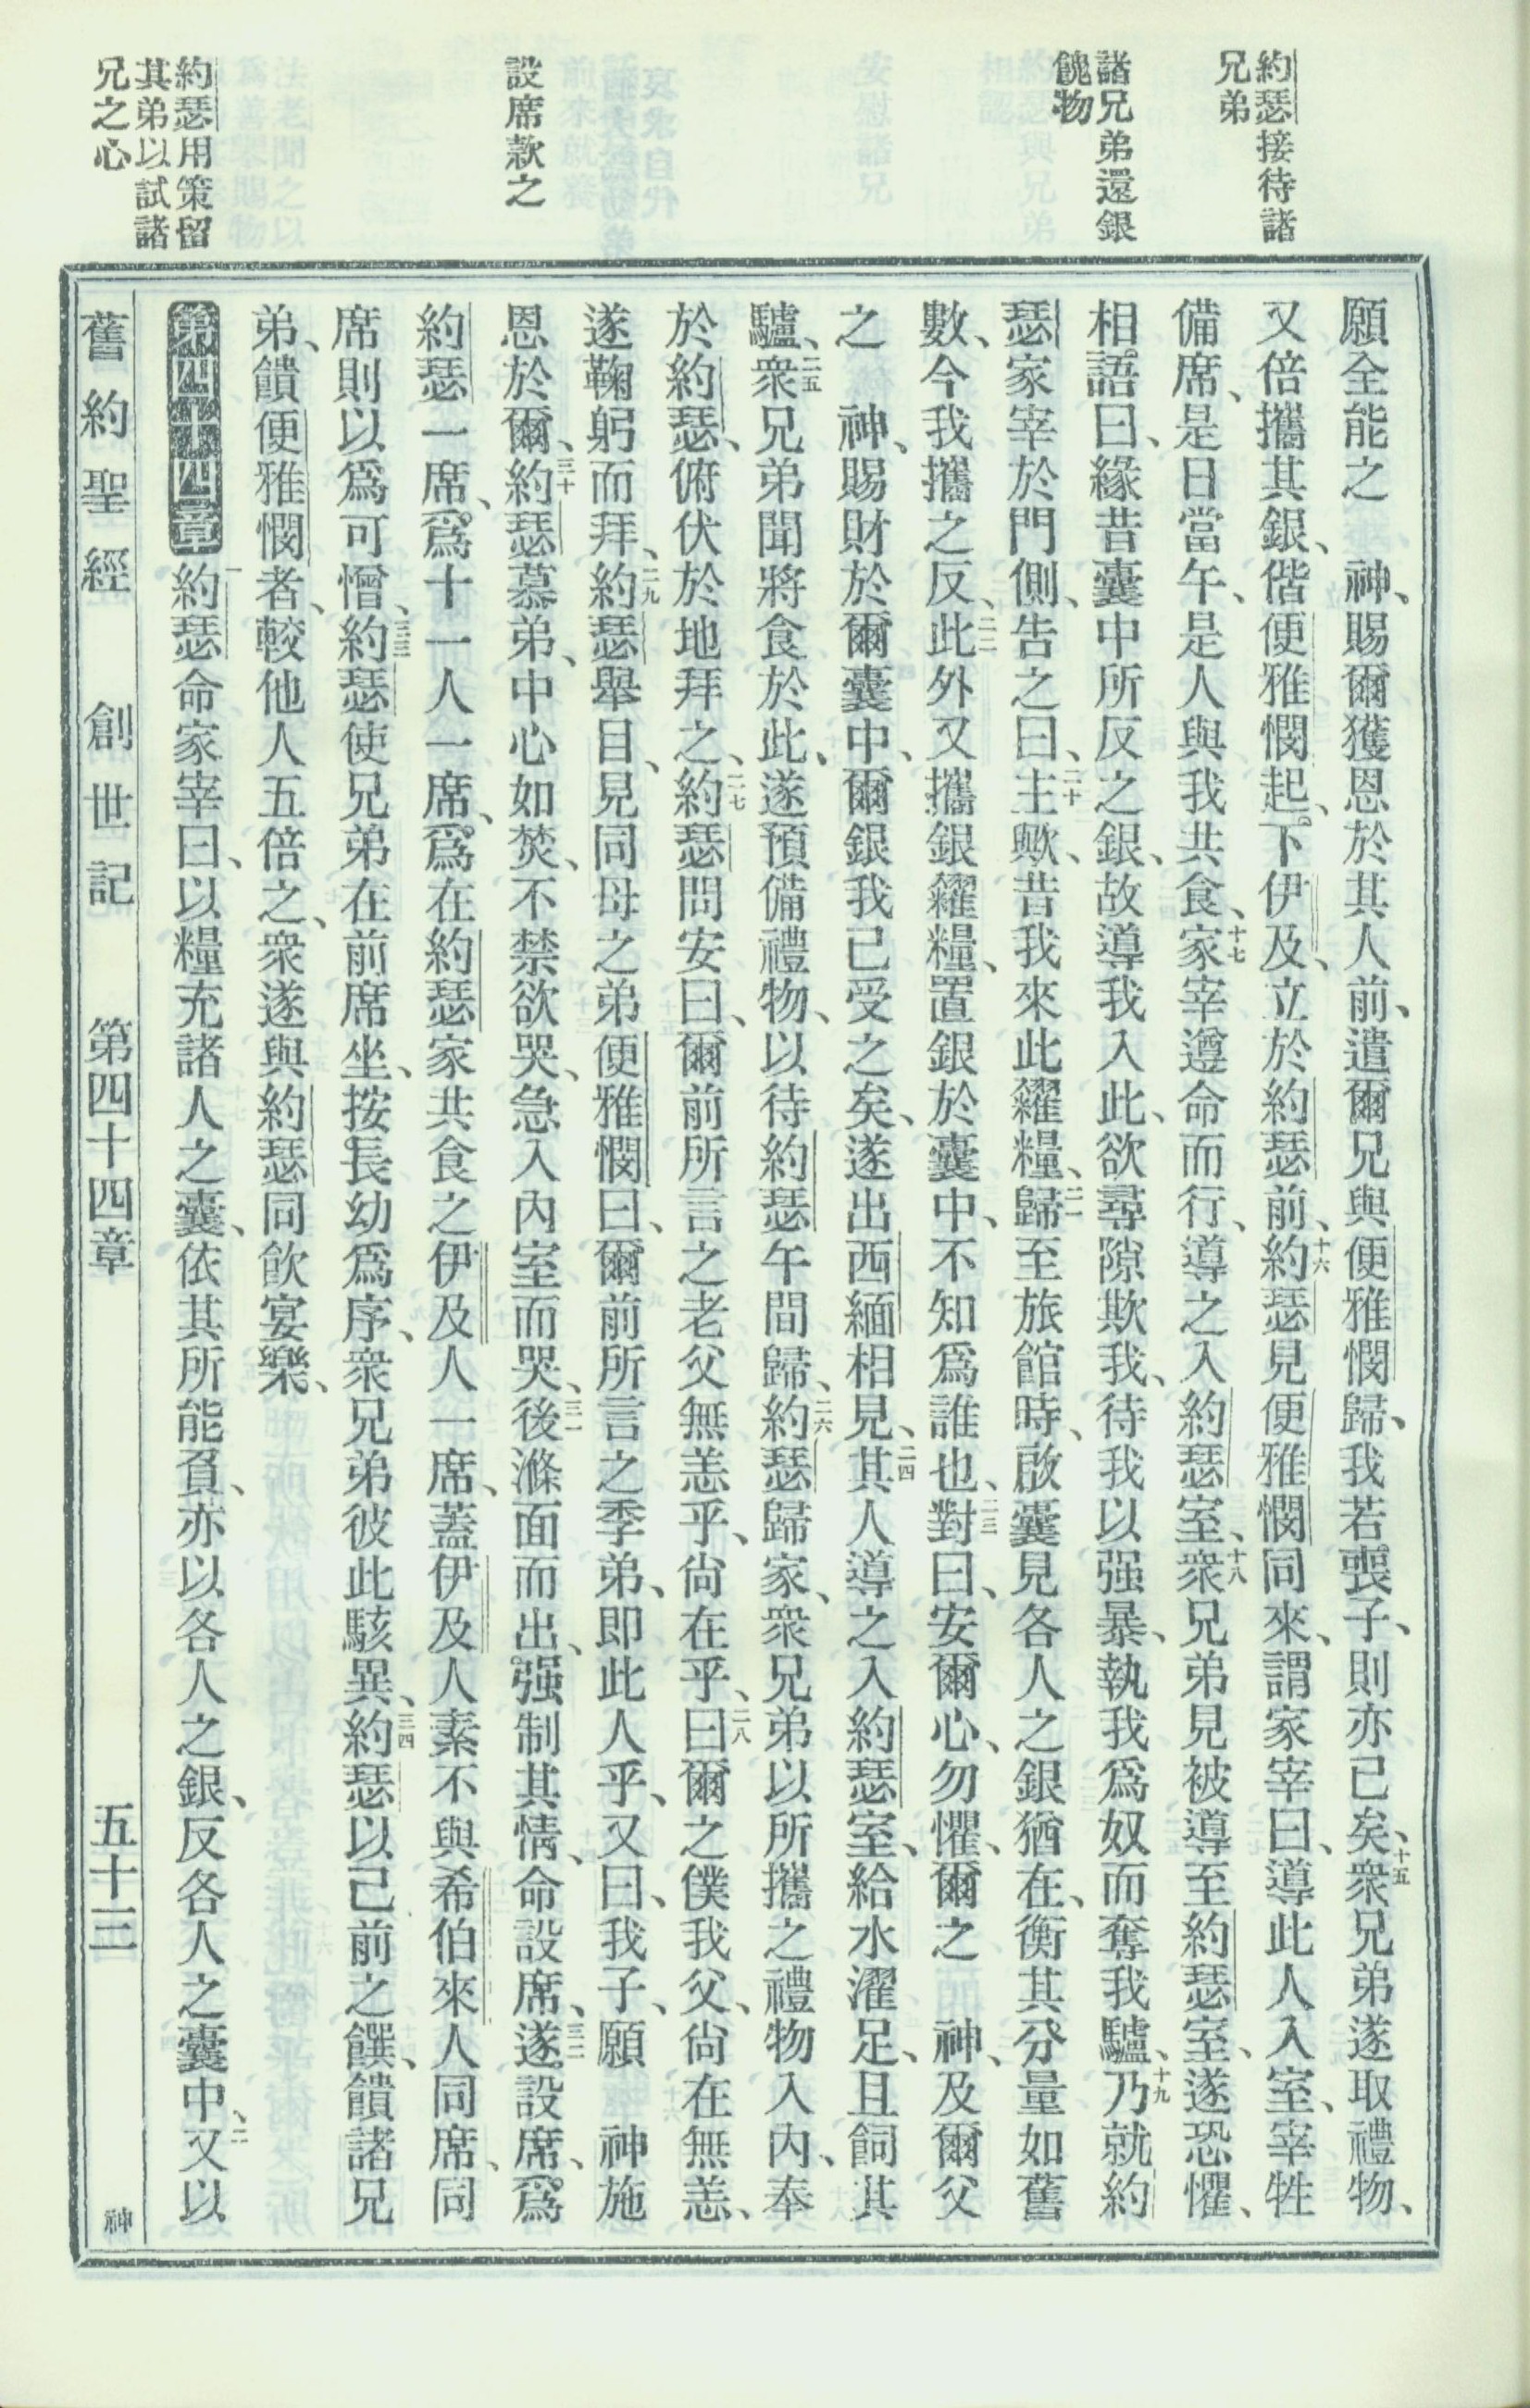 約瑟接待諸
兄弟
諸兄弟還銀
餽物
設席欵之
約瑟用策留
其弟以試諸
兄之心
願全能之　神、賜爾獲恩於其人前、遣爾兄與便雅憫歸、我若喪子、則亦已矣、十五衆兄弟遂取禮物、
又倍攜其銀、偕便雅憫起、下伊及、立於約瑟前、十六約瑟見便雅憫同來、謂家宰曰、導此人入室、宰牲
備席、是日當午、是人與我共食、十七家宰遵命而行、導之入約瑟室、十八衆兄弟見被導至約瑟室、遂恐懼、
相語曰、緣昔囊中所反之銀、故導我入此、欲尋隙欺我、待我以强暴、執我爲奴而奪我驢、十九乃就約
瑟家宰於門側、告之曰、二十主歟、昔我來此糴糧、二一歸至旅館時、啟囊見各人之銀猶在、衡其分量如舊
數、今我攜之反、二二此外又攜銀糴糧、置銀於囊中、不知爲誰也、二三對曰、安爾心、勿懼、爾之　神、及爾父
之　神、賜財於爾囊中、爾銀我已受之矣、遂出西緬相見、二四其人導之入約瑟室、給水濯足、且飼其
驢、二五衆兄弟聞將食於此、遂預備禮物、以待約瑟午間歸、二六約瑟歸家、衆兄弟以所攜之禮物入內、奉
於約瑟、俯伏於地拜之、二七約瑟問安曰、爾前所言之老父無恙乎、尙在乎、二八曰爾之僕我父、尙在無恙、
遂鞠躬而拜、二九約瑟舉目、見同母之弟便雅憫曰、爾前所言之季弟、卽此人乎、又曰、我子、願　神施
恩於爾、三十約瑟慕弟、中心如焚、不禁欲哭、急入內室而哭、三一後滌面而出、强制其情、命設席、三二遂設席、爲
約瑟一席、爲十一人一席、爲在約瑟家共食之伊及人一席、蓋伊及人素不與希伯來人同席、同
席則以爲可憎、三三約瑟使兄弟在前席坐、按長幼爲序、衆兄弟彼此駭異、三四約瑟以己前之饌、饋諸兄
弟、饋便雅憫者、較他人五倍之、衆遂與約瑟同飮宴樂、
第四十四章 一約瑟命家宰曰、以糧充諸人之囊、依其所能負、亦以各人之銀、反各人之囊中、二又以
舊約聖經　創世記　第四十四章　五十三　神